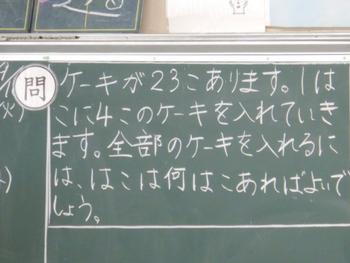 問
ケーキが23こあります。1は
こに4このケーキを入れていき
ます。全部のケーキを入れるに
は、はこは何はこあればよいで
しょう。